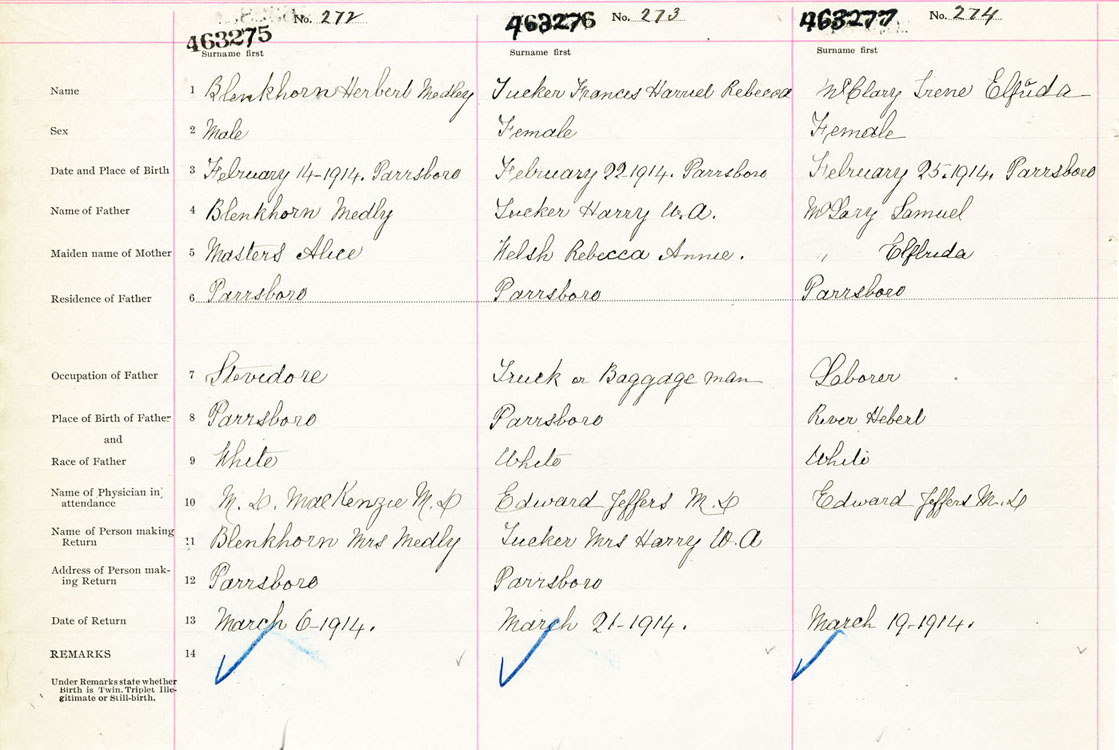 No. 272 No. 273 No. 274
463275 463276 463277
Surname first Surname first Surname first
Name 1 Blenkhorn Herbert Medley Tucker Frances Harriet Rebecca McClary Irene Elfrida
Sex 2 Male Female Female
Date and Place of Birth 3 February 14-1914. Parrsboro February 22-1914. Parrsboro February 25.1914. Parrsboro
Name of Father 4 Blenkhorn Medly Tucker Harry W.A. McLary Samuel
Maiden name of Mother 5 Masters Alice Welsh Rebecca Annie. " Elfrida
Residence of Father 6 Parrsboro Parrsboro Parrsboro
Occupation of Father 7 Stevidore Truck or Baggage man Laborer
Place of Birth of Father 8 Parrsboro Parrsboro River Hebert
and
Race of Father 9 White White White
Name of Physician in attendance 10 M. D. MacKenzie M.D Edward Jeffers M.D Edward Jeffers M.D
Name of Person making Return 11 Blenkhorn Mrs Medly Tucker Mrs Harry W.A
Address of Person mak-ing Return 12 Parrsboro Parrsboro
Date of Return 13 March 6-1914. March 21-1914. March 19-1914.
REMARKS 14
Under Remarks state whether
Birth is Twin, Triplet Ille-
gitimate or Still-birth.